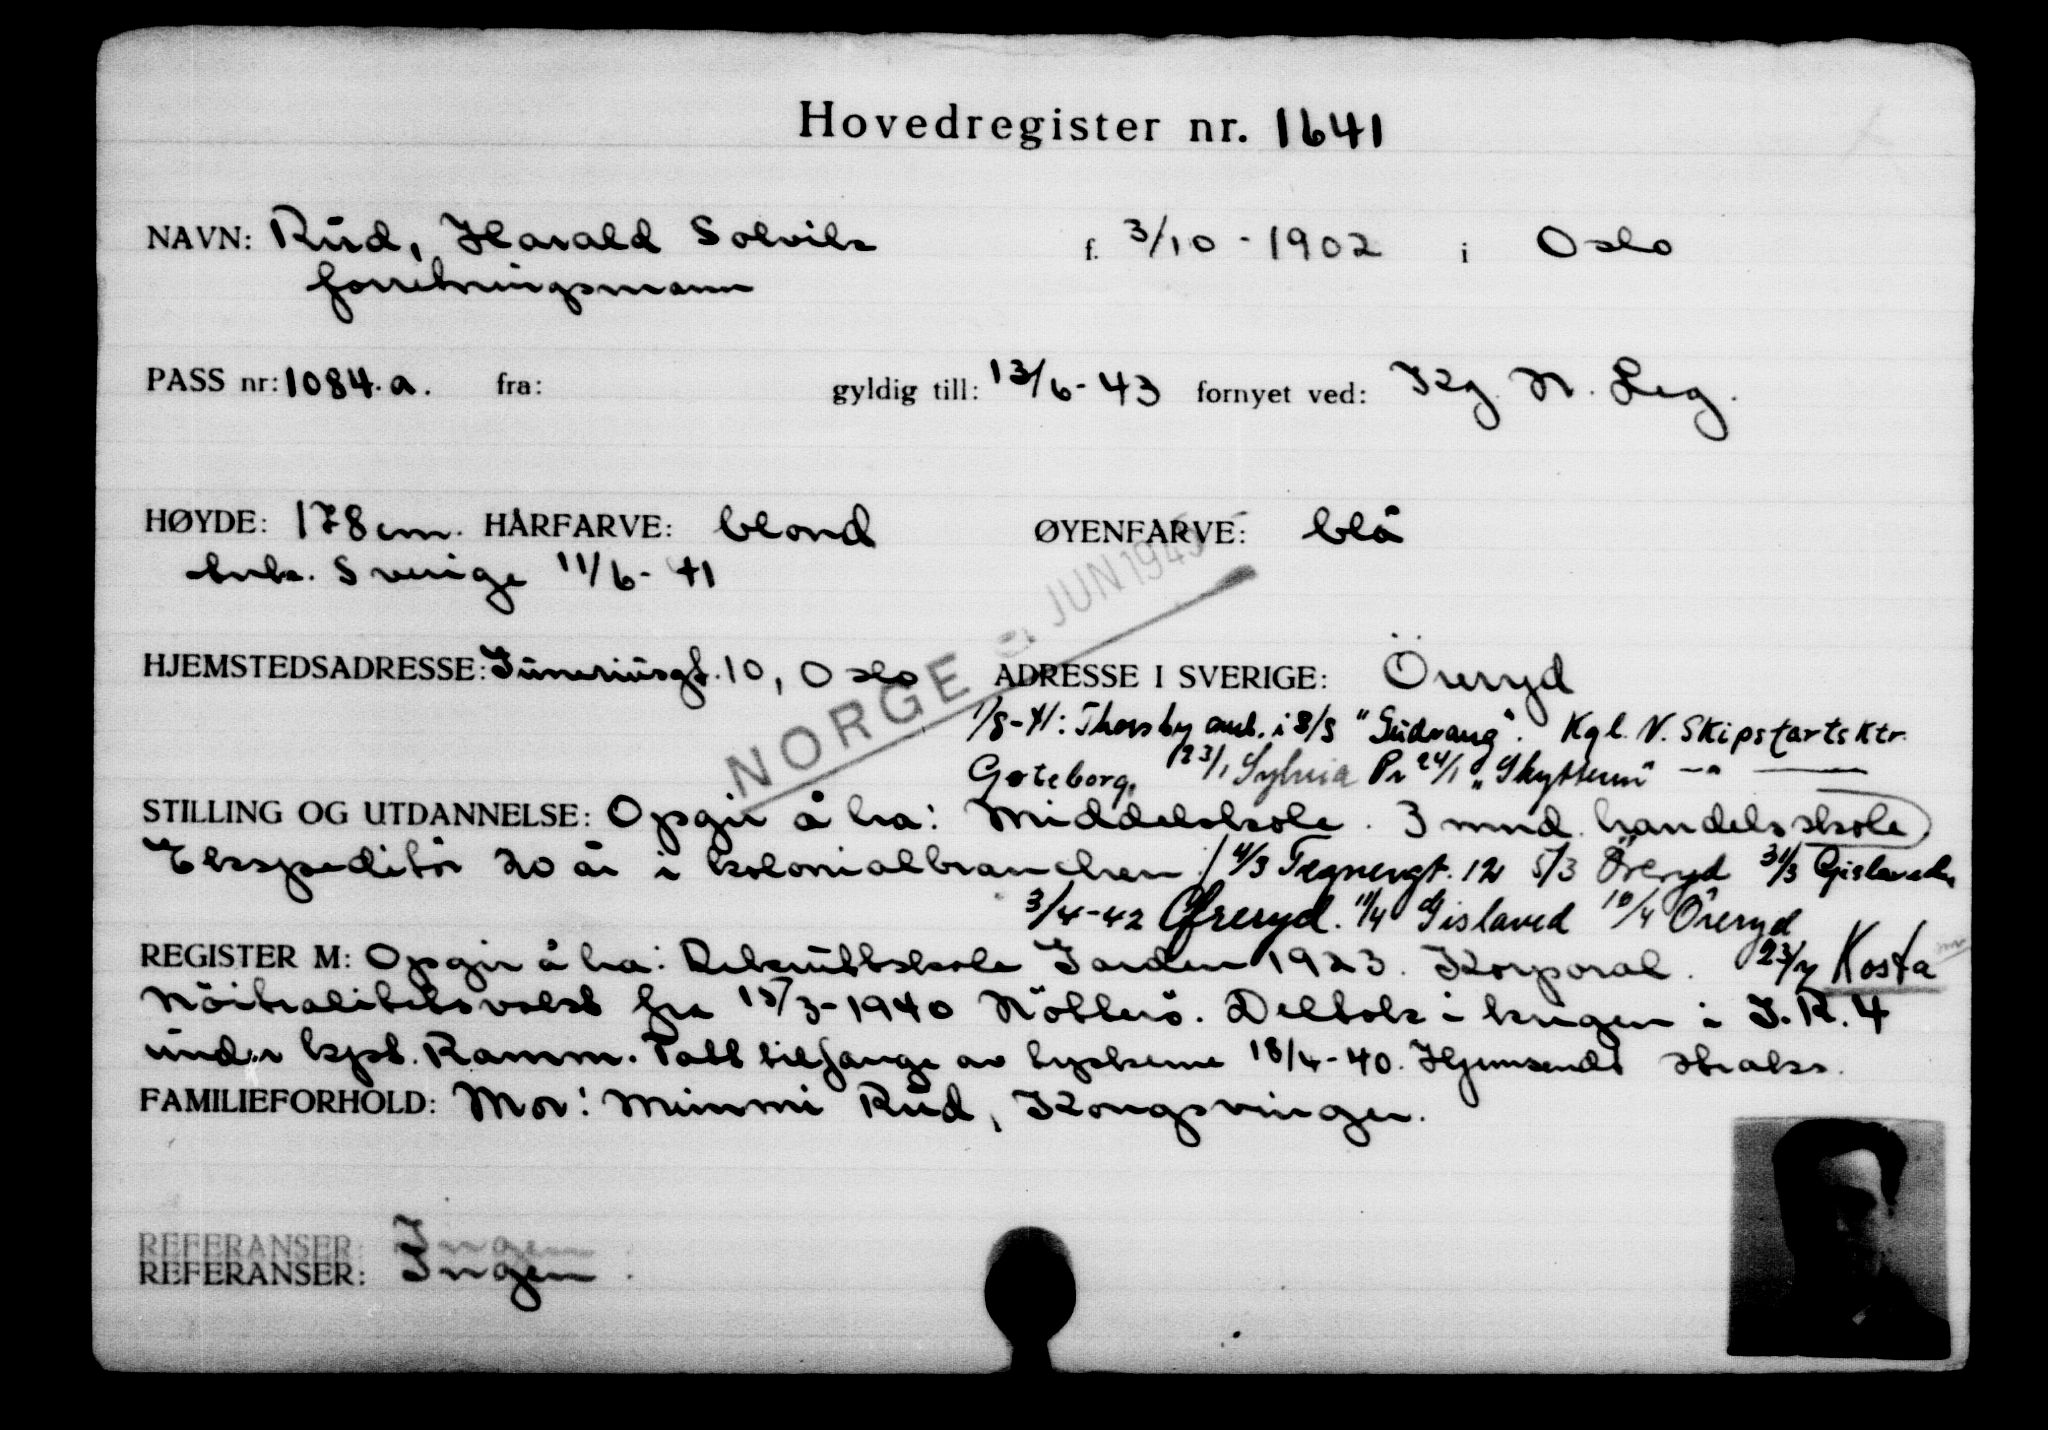 Hovedregister nr. 1641
NAVN: Rud, Harald Solvik f. 3/10 - 1902 i Oslo
forretningsmann
PASS nr: 1084.a. fra: gyldig till: 13/6-43 fornyet ved: Kg. N. Leg.
HØYDE: 178 cm. HÅRFARVE: blond ØYENFARVE: blå
ank. Sverige 11/6-41
NORGE JUN 1945
HJEMSTEDSADRESSE: Juneriusgt. 10, Oslo ADRESSE I SVERIGE: Öreryd
1/8-41: Thorsby ank. i 8/8 "Gudvang". Kgl. N. Skipsfartsktr.
Gøteborg. 23/1 Sylvia Pr 24/1 "Skytteren" — " —
STILLING OG UTDANNELSE: Opgir å ha: Middelskole. 3 mnd. handelsskole
Ekspeditör 20 år i kolonialbranchen. 4/3 Tegnergt. 12 5/3 Öreryd 31/3 Gislaved
3/4-42 Öreryd. 11/4 Gislaved 10/4 Öreryd
REGISTER M: Opgir å ha: Rekruttskole Jorden 1923. Korporal. 23/7 Kosta
Nöitralitetsvakt fra 15/3-1940 Nötterö. Deltok i krigen i I.R. 4
under kpt. Ramm. Tatt tilfange av tyskerne 18/4-40. Hjemsendt straks.
FAMILIEFORHOLD: Mor: Mimmi Rud, Kongsvinger.
REFERANSER: Ingen
REFERANSER: Ingen.